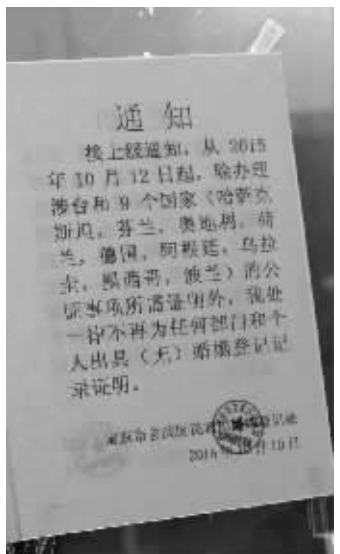 通知
接上级通知，从 2015
年 10 月 12 日起，除办理
涉台和 9 个国家（哈萨克
斯坦，芬兰，奥地利，荷
兰，德国，阿根廷，乌拉
圭，墨西哥，波兰）的公
证事项所需证明外，我处
一律不再为任何部门和个
人出具（无）婚姻登记记
录证明。
登记处
2015年10月10日